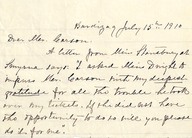 Bardizag July 15th 1910
Dear Mrs. Carson:
A letter from Miss Stansbury at
Smyrna says "I asked Miss Dwight to
express Mrs. Carson my deepest
gratitude for all the trouble he took
over my tickets. If she did not have
the opportunity to do so will you please
do it for me."